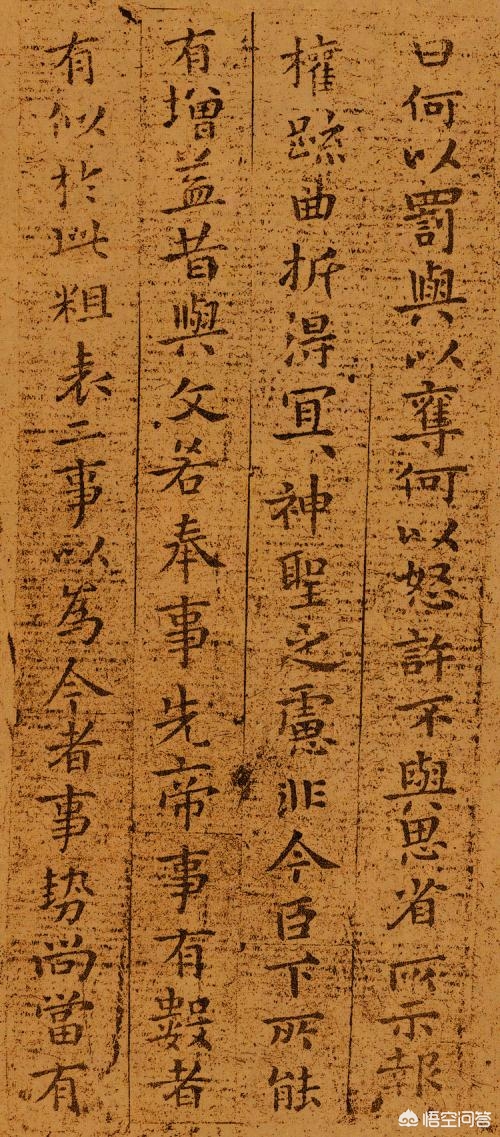 曰何以罰與以奪何以怒許不與思省所示報
權疏曲折得宜神聖之慮非今臣下所能
有增益昔與文若奉事先帝事有數者
有似於此粗表二事以為今者事勢尚當有
悟空问答